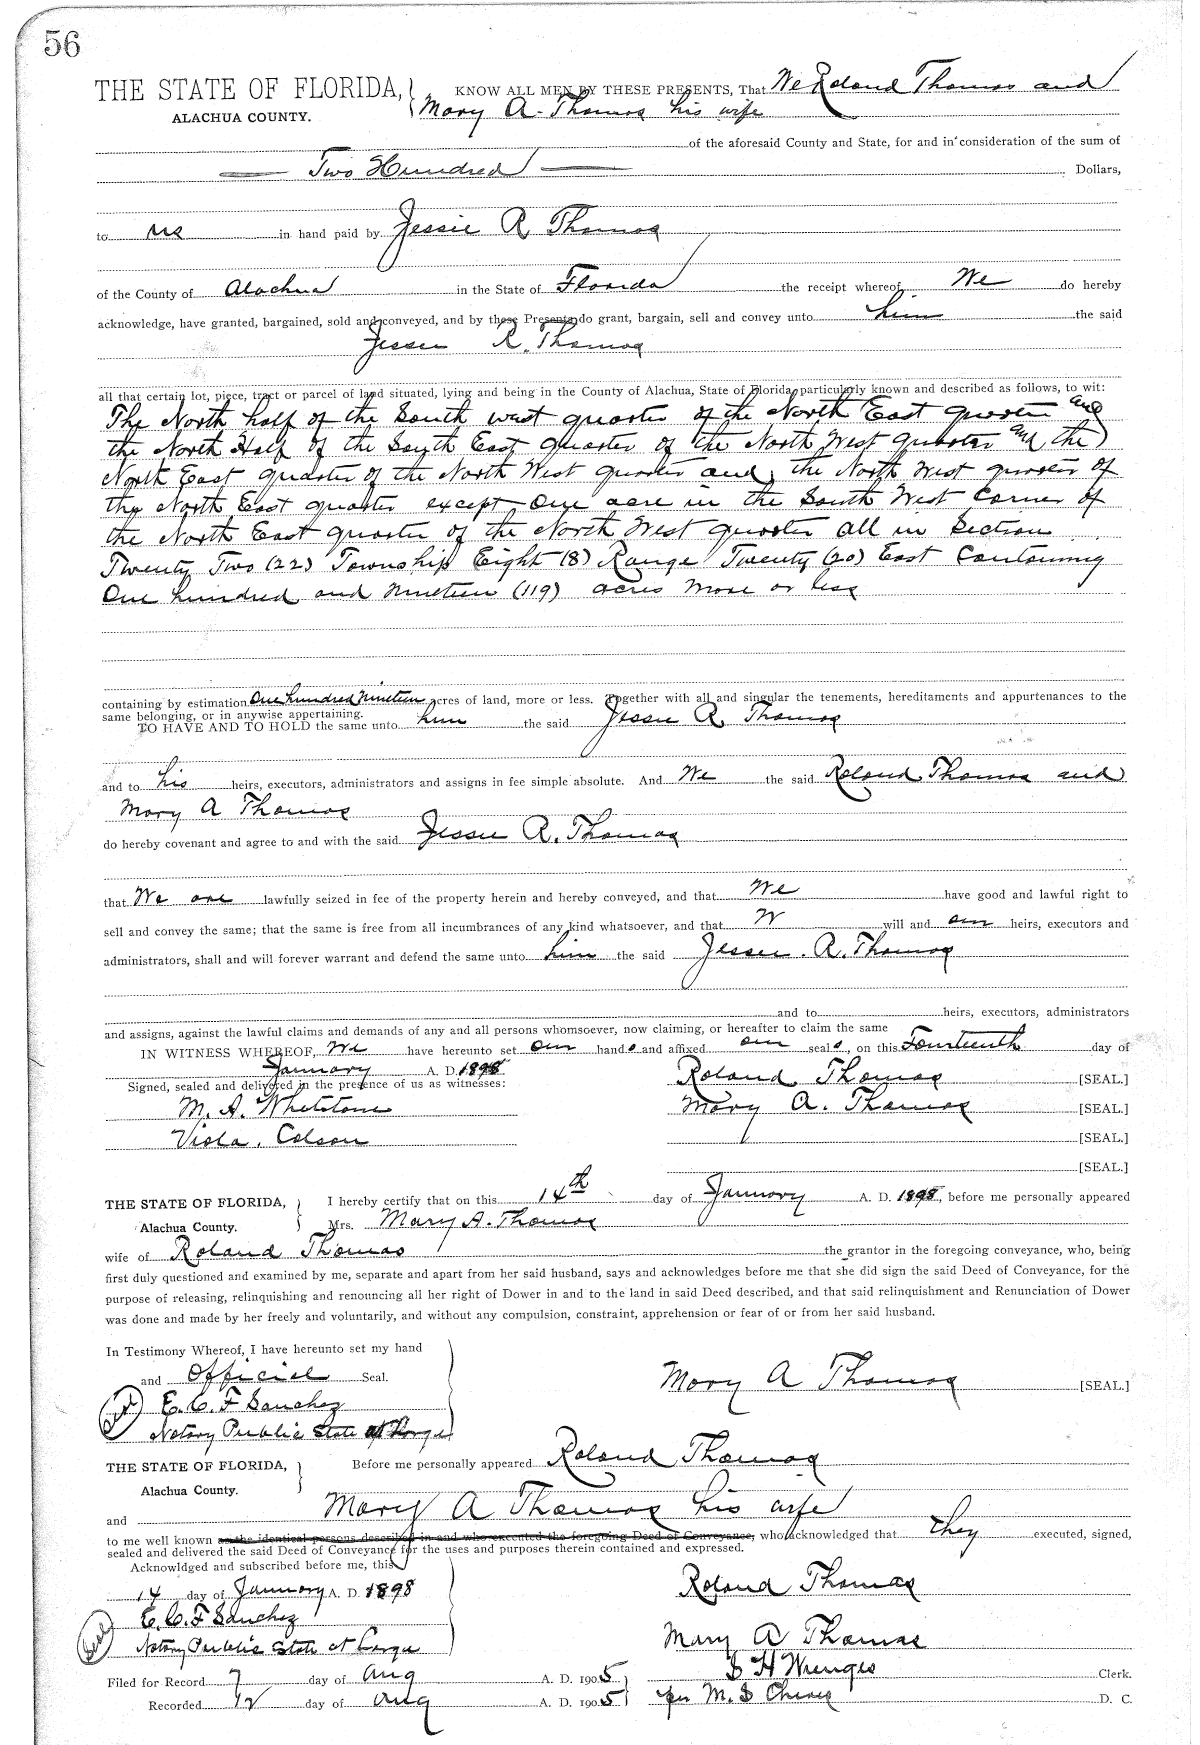 56
THE STATE OF FLORIDA, KNOW ALL MEN BY THESE PRESENTS, That We Roland Thomas and
ALACHUA COUNTY. Mary A. Thomas his wife
of the aforesaid County and State, for and in consideration of the sum of
Two Hundred Dollars,
to us in hand paid by Jessie R Thomas
of the County of Alachua in the State of Florida the receipt whereof We do hereby
acknowledge, have granted, bargained, sold and conveyed, and by these Presents do grant, bargain, sell and convey unto him the said
Jessie R. Thomas
all that certain lot, piece, tract or parcel of land situated, lying and being in the County of Alachua, State of Florida, particularly known and described as follows, to wit:
The North half of the South west quarter of the North East quarter and
the North Half of the South East quarter of the North West quarter and the
North East quarter of the North West quarter and, the North West quarter of
the North East quarter except One acre in the South West Corner of
the North East quarter of the North West quarter all in Section
Twenty Two (22) Township Eight (8) Range Twenty (20) East Containing
One hundred and Nineteen (119) acres more or less
containing by estimation One hundred Nineteen acres of land, more or less. Together with all and singular the tenements, hereditaments and appurtenances to the
same belonging, or in anywise appertaining.
TO HAVE AND TO HOLD the same unto him the said Jessie R Thomas
and to his heirs, executors, administrators and assigns in fee simple absolute. And We the said Roland Thomas and
Mary A Thomas
do hereby covenant and agree to and with the said Jessie R. Thomas
that We are lawfully seized in fee of the property herein and hereby conveyed, and that We have good and lawful right to
sell and convey the same; that the same is free from all incumbrances of any kind whatsoever, and that W will and our heirs, executors and
administrators, shall and will forever warrant and defend the same unto him the said Jessie. R. Thomas
and to heirs, executors, administrators
and assigns, against the lawful claims and demands of any and all persons whomsoever, now claiming, or hereafter to claim the same
IN WITNESS WHEREOF, We have hereunto set our hands and affixed our seals, on this Fourteenth day of
January A. D. 1898
Signed, sealed and delivered in the presence of us as witnesses: Roland Thomas [SEAL.]
M. A. Whetstone Mary A. Thomas [SEAL.]
Viola. Colson [SEAL.]
[SEAL.]
THE STATE OF FLORIDA, I hereby certify that on this 14th day of January A. D. 1898, before me personally appeared
Alachua County. Mrs. Mary A. Thomas
wife of Roland Thomas the grantor in the foregoing conveyance, who, being
first duly questioned and examined by me, separate and apart from her said husband, says and acknowledges before me that she did sign the said Deed of Conveyance, for the
purpose of releasing, relinquishing and renouncing all her right of Dower in and to the land in said Deed described, and that said relinquishment and Renunciation of Dower
was done and made by her freely and voluntarily, and without any compulsion, constraint, apprehension or fear of or from her said husband.
In Testimony Whereof, I have hereunto set my hand
and Official Seal. Mary A Thomas [SEAL.]
E. C. F Sanchez
Notary Public State at Large
THE STATE OF FLORIDA, Before me personally appeared Roland Thomas
Alachua County.
and Mary A Thomas his wife
to me well known as the identical persons described in and who executed the foregoing Deed of Conveyance, who acknowledged that they executed, signed,
sealed and delivered the said Deed of Conveyance for the uses and purposes therein contained and expressed.
Acknowldged and subscribed before me, this
14 day of January A. D. 1898 Roland Thomas
E. C. F Sanchez
Seal Notary Public State at Large Mary A Thomas
Filed for Record 7 day of Aug A. D. 1905 S H Wienges Clerk.
Recorded 12 day of Aug A. D. 1905 per M. S Cheves D. C.